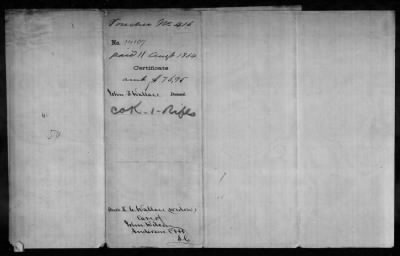 Voucher No 416
No.
paid 11 Augt 1864
Certificate
amt $ 76,95
John Wallace Deceased
Co K - 1 - Rifles
Wallace (widow)
Care of
John
Anderson C.H.
S.C
50